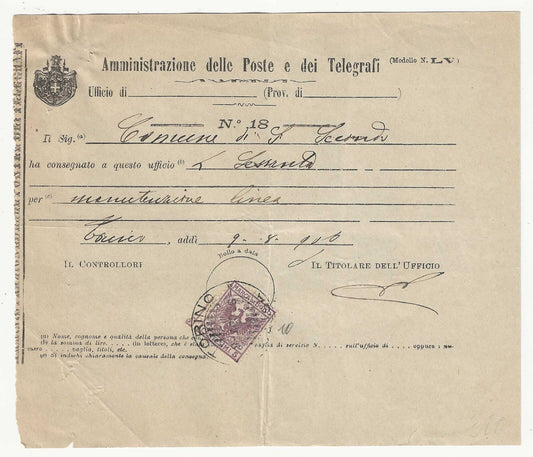 Amministrazione delle Poste e dei Telegrafi (Modello N. LV)
Ufficio di (Prov. di )
N.º 18
Il Sig. (a) Comune di S. Secondo
ha consegnato a questo ufficio (b) L. Sessanta
per (c) manutenzione linea
Torino, addì 9 - 8 -
Bollo a data
IL CONTROLLORE IL TITOLARE DELL'UFFICIO
TORINO
(a) Nome, cognome e qualità della persona che
(b) la somma di lire . . . . (in lettere), che è vaglia di servizio N. . . . . sull'ufficio di . . . . oppure : nu-
mero . . . vaglia, titoli, etc.
(c) di indichi chiaramente la causale della consegna.